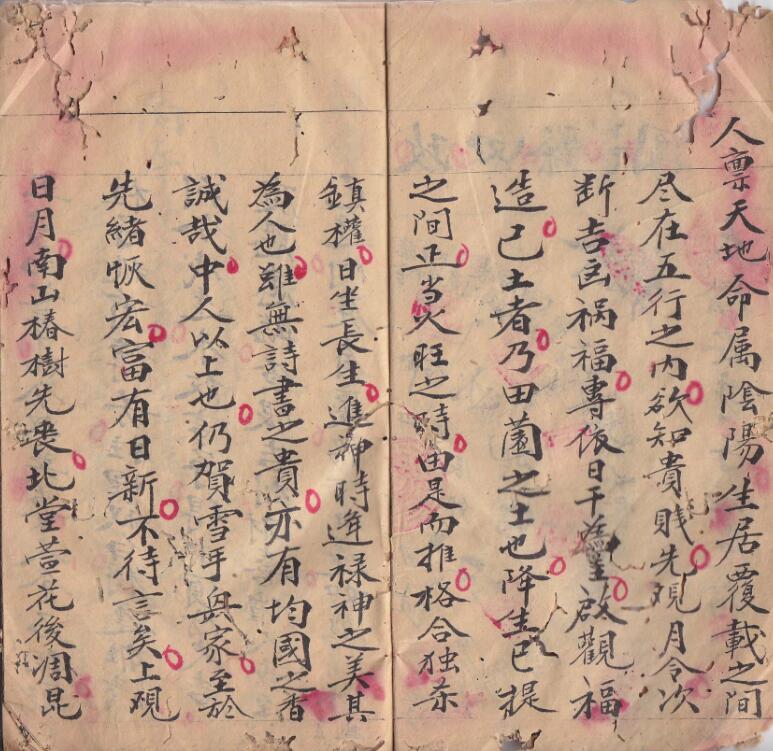 人禀天地命属陰陽生居覆載之间
尽在五行之内欲知貴贱先观月令次
断吉凶祸福專依日干為主啟觀福
造己土者乃田薗之土也降生巳提
之间正当火旺之時由是而推格合独杀
鎮權日坐長生進神時逢禄神之美其
為人也雖無詩書之貴亦有均國之香
誠哉中人以上也仍賀雪手與家至於
先緒恢宏富有日新不待言矣上观
日月南山椿樹先喪北堂萱花後凋昆